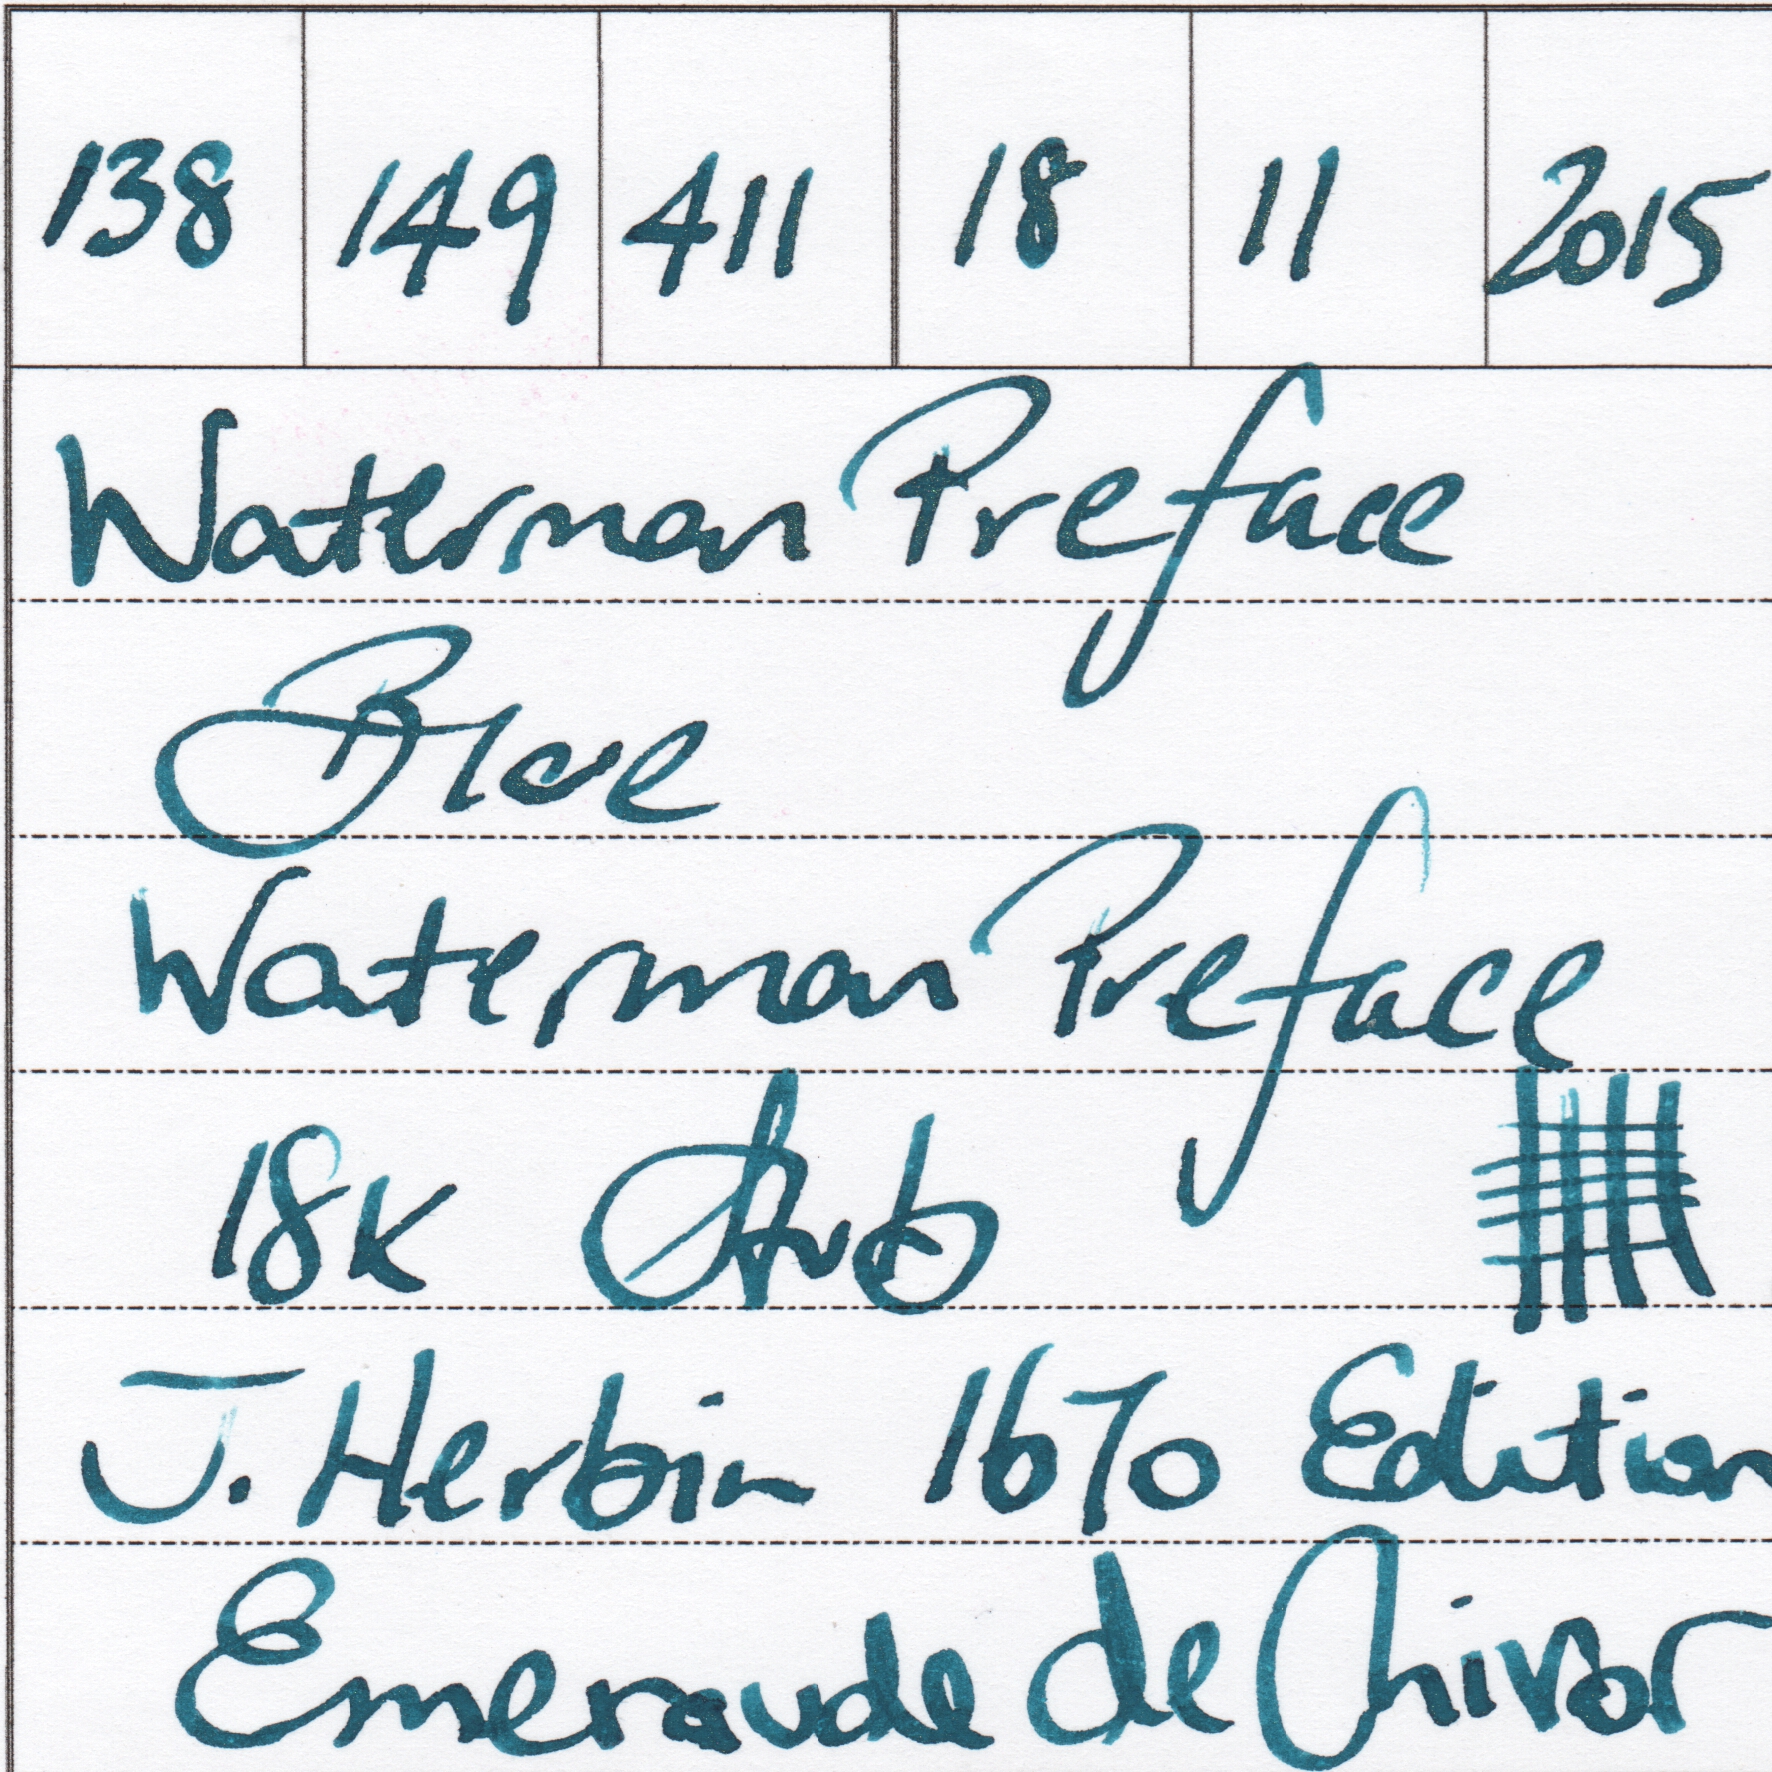 138 149 411 18 11 2015
Waterman Preface
Blue
Waterman Preface
18K Stub
J. Herbin 1670 Edition
Emeraude de Chivor